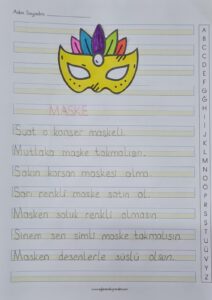 Adım Soyadım:
MASKE
Suat o konser maskeli.
Mutlaka maske takmalısın.
Sakın korsan maskesi alma.
Sarı renkli maske satın al.
Masken soluk renkli olmasın.
Sinem sen simli maske takmalısın.
Masken desenlerle süslü olsun.
A
B
C
Ç
D
E
F
G
Ğ
H
I
İ
J
K
L
M
N
O
Ö
P
R
S
Ş
T
U
Ü
V
Y
Z